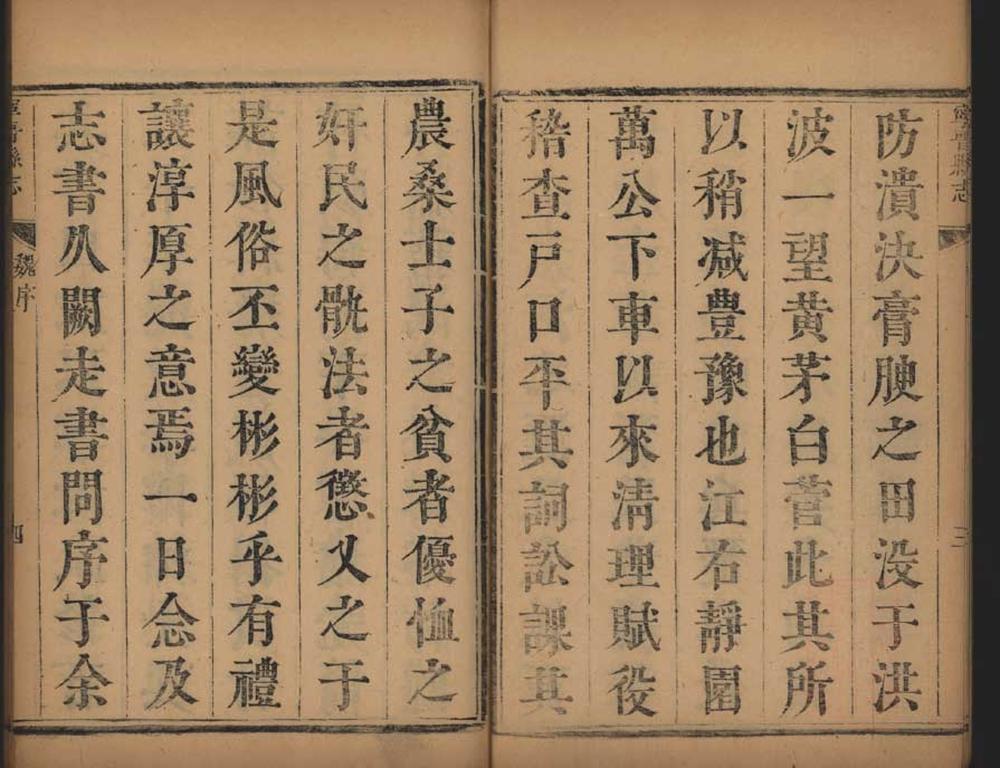 寧晋縣志
三
防潰決膏腴之田没于洪
波一望黃茅白菅此其所
以稍减豊豫也江右靜園
萬公下車以來清理賦役
稽查戸口平其詞訟課其
農桑士子之貧者優恤之
奸民之骩法者懲乂之于
是風俗丕變彬彬乎有禮
讓淳厚之意焉一日念及
志書乆闕走書問序于余
寧晋縣志
魏序
四